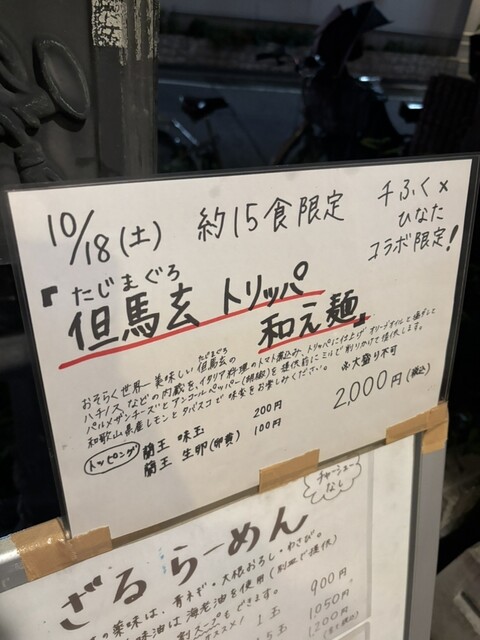 10/18(土) 約15食限定
千ふく×
ひなた
コラボ限定!
たじまぐろ
『但馬玄 トリッパ
和え麺』
たじまぐろ
おそらく世界一美味しい但馬玄の
ハチノスなどの内蔵を、イタリア料理のトマト煮込み、トリッパに仕上げ オリーブオイルと塩だしで
パルメザンチーズとアンコールペッパー(胡椒)を提供前にミルで削りかけて提供します。
和歌山県産レモンとタバスコで味変をお楽しみください。
※大盛り不可
2,000円(税込)
トッピング 蘭王 味玉 200円
蘭王 生卵(卵黄) 100円
チャーシュー
なし
ざるらーめん
の薬味は、青ネギ・大根おろし・わさび。
味油は海老油を使用(別皿で提供)
割スープもできます。
900円
1玉 1050円
1.5玉 1200円